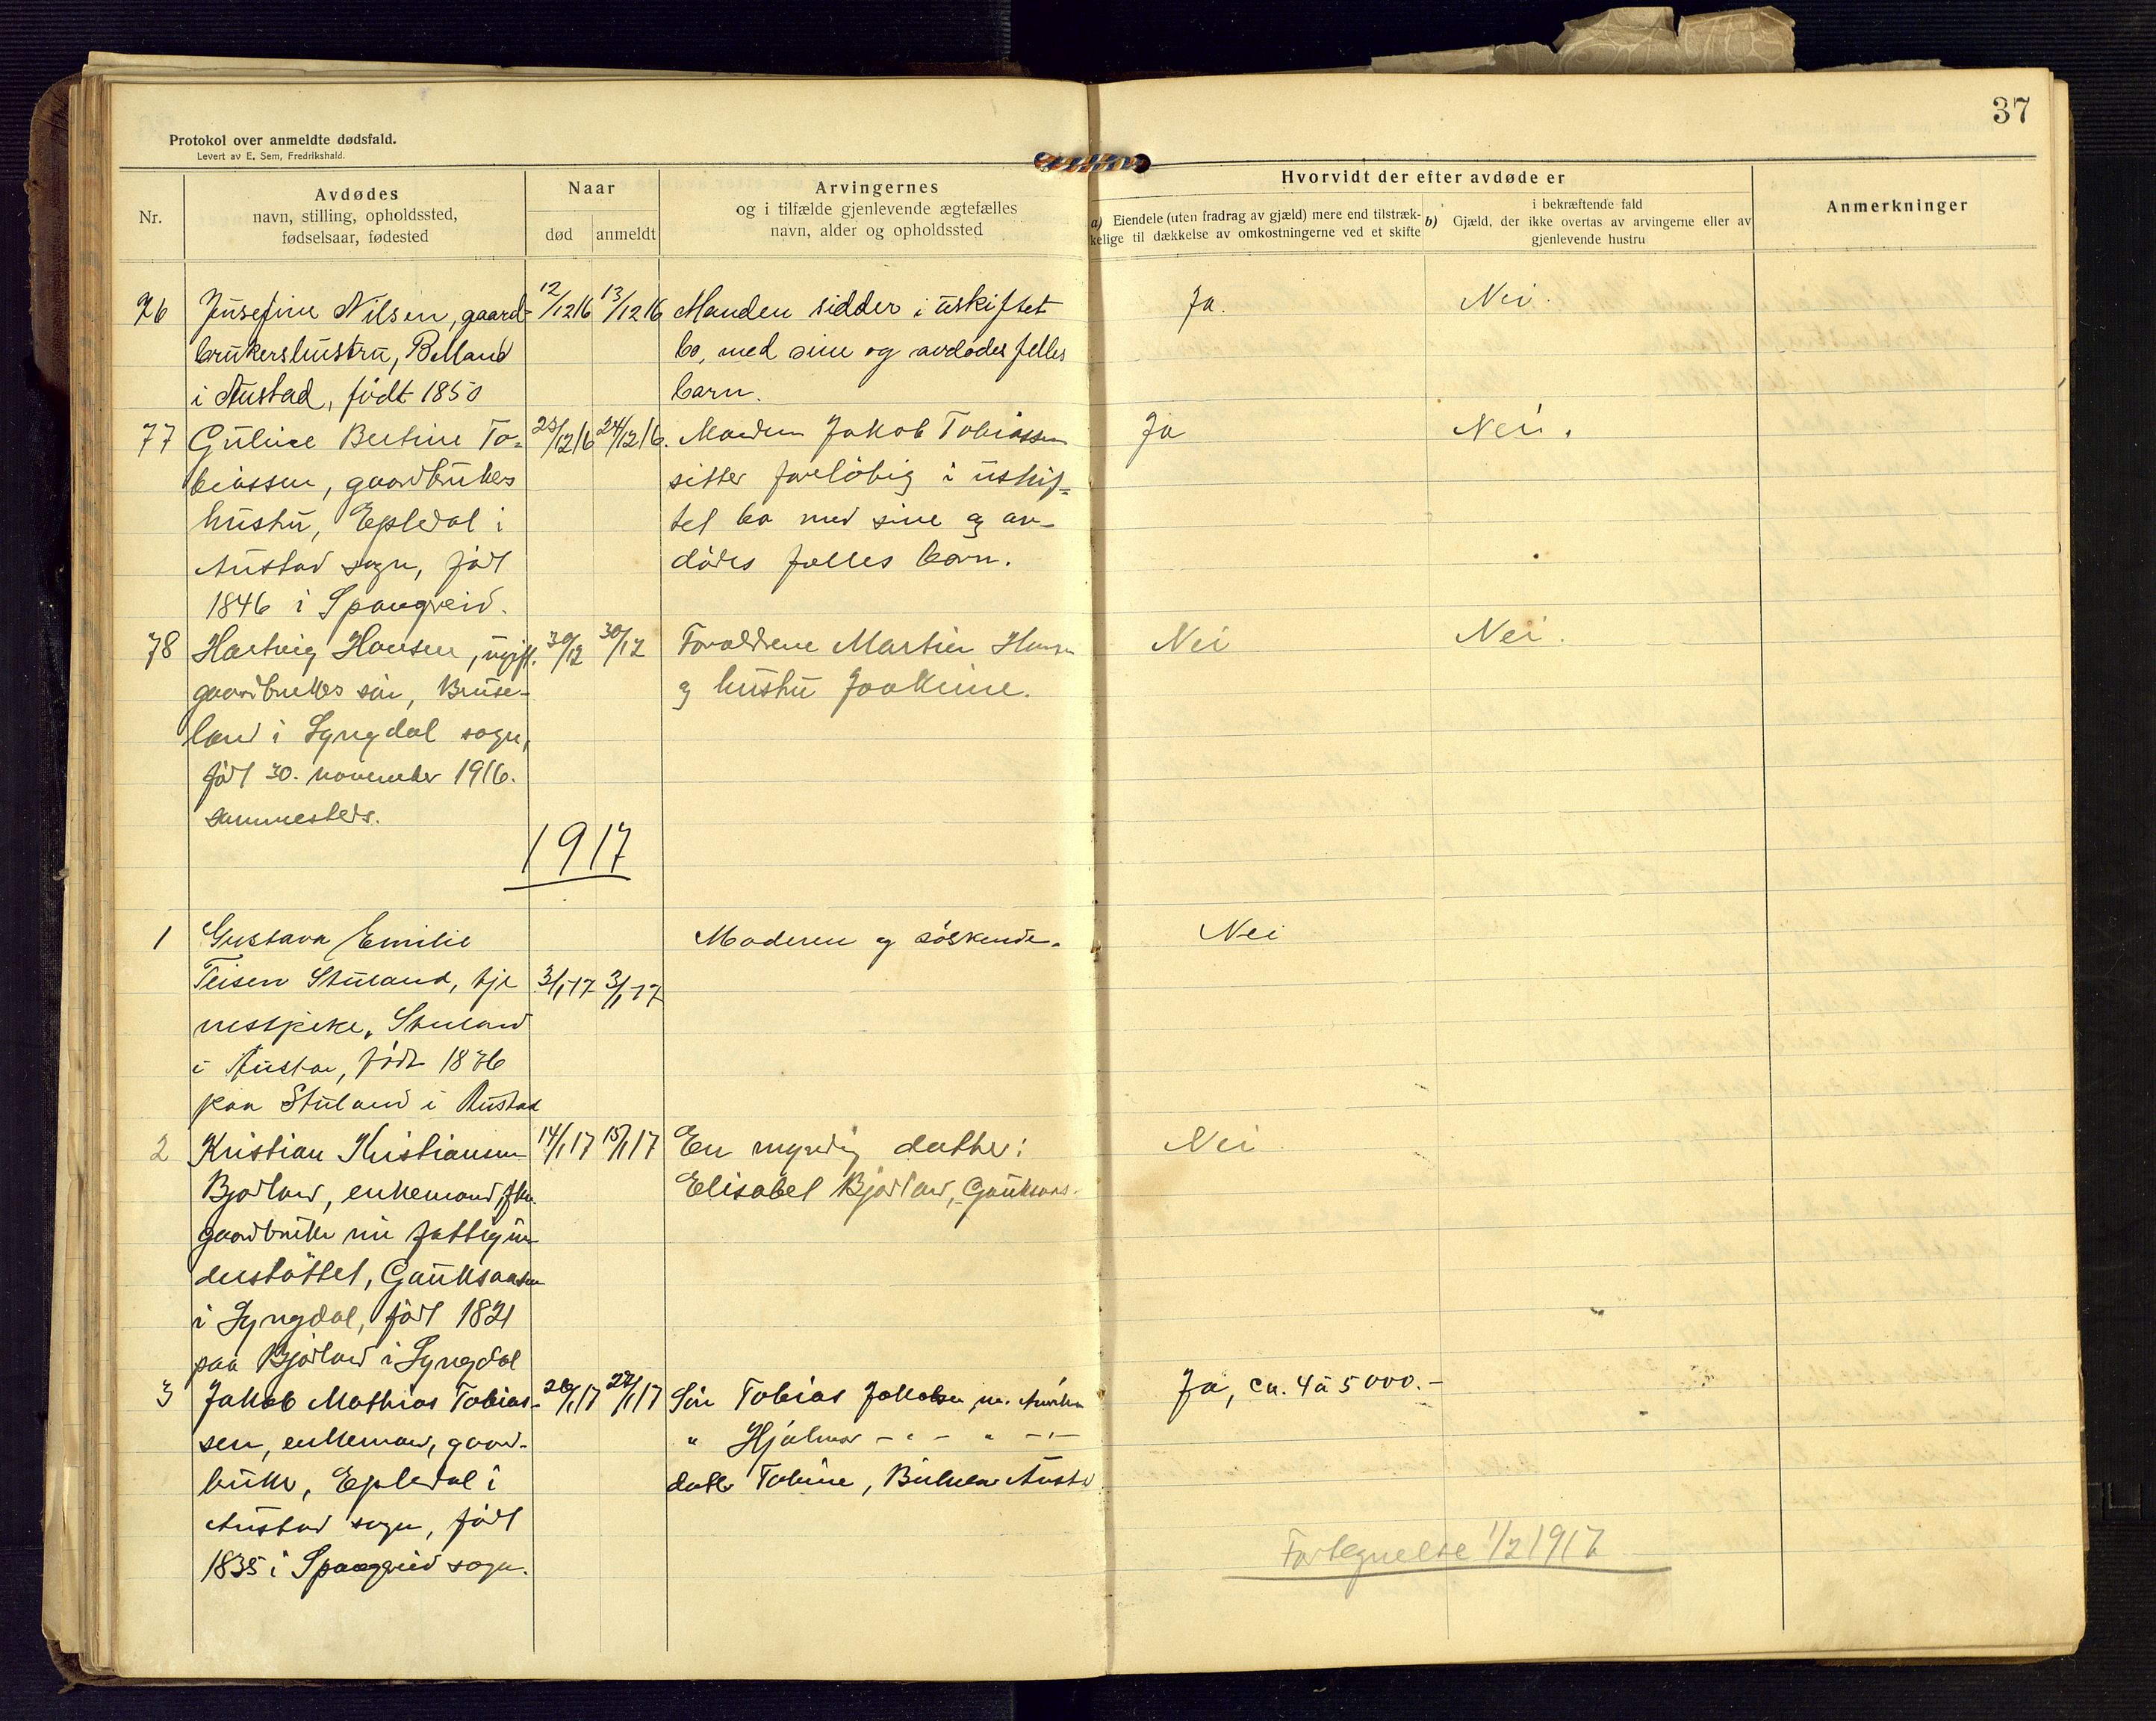 37
Protokol over anmeldte dødsfald.
Levert av E. Sem, Fredrikshald.
Nr.
Avdødes
navn, stilling, opholdssted,
fødselsaar, fødested
Naar
død
anmeldt
Arvingernes
og i tilfælde gjenlevende ægtefælles
navn, alder og opholdssted
Hvorvidt der efter avdøde er
a) Eiendele (uten fradrag av gjæld) mere end tilstræk-
kelige til dækkelse av omkostningerne ved et skifte
i bekræftende fald
b) Gjæld, der ikke overtas av arvingerne eller av
gjenlevende hustru
Anmerkninger
76
Jusefine Nilsen, gaard-
brukershustru, Belland
i Austad, født 1850
12/12 16
13/12 16
Manden sidder i uskiftet
bo, med sine og avdødes felles
barn.
Ja.
Nei.
77
Guline Bertine To-
biassen, gaardbrukers
hustru, Epledal i
Austad sogn, født
1846 i Spangreid.
23/12 16
24/12 16.
Manden Jakob Tobiassen
sitter foreløbig i uskif-
tet bo med sine og av-
dødes fælles barn.
Ja
Nei.
78
Hartvig Hansen, ugift.
gaardbrukers søn, Bruse-
land i Lyngdal sogn,
født 30. november 1916.
sammesteds.
30/12
30/12
Forældrene Martin Hansen
og hustru Joakime.
Nei
Nei.
1917
1
Gustava Emilie
Teisen Stuland, tje
nestpike, Stuland
i Austad, født 1876
paa Stuland i Austad
3/1-17
3/1-17
Moderen og søskende.
Nei
2
Kristian Kristiansen
Bjørland, enkemand fhv.
gaardbruker nu fattigun-
derstøttet, Gauksaasen
i Lyngdal, født 1821
paa Bjørland i Lyngdal
14/1 17
15/1 17
En myndig datter:
Elisabet Bjørland, Gauksaas.
Nei
3
Jakob Mathias Tobias-
sen, enkemand, gaard-
bruker, Epledal i
Austad sogn, født
1835 i Spangreid sogn.
26/1 17
27/1 17
Søn Tobias Jakobsen, m. Amerika
" Hjalmar - " - " - " -
datter Tobine, Austad
Ja, ca. 4 à 5000.-
Fortegnelse 1/2 1917